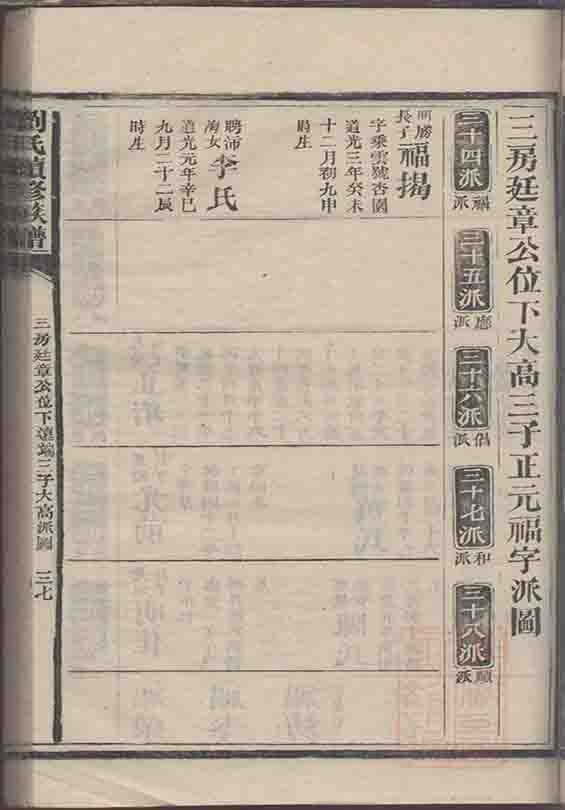 三房廷章公位下大高三子正元福字派圖
三十四派
福派
三十五派
應派
三十六派
侶派
三十七派
和派
三十八派
順派
前勝長子
福揭
字乘雲號杏園
道光三年癸未
十二月初九申
時生
聘沛
洵女
李氏
道光元年辛巳
九月二十二辰
時生
劉氏續修族譜
三房廷章公位下達端三子大高派圖
三七